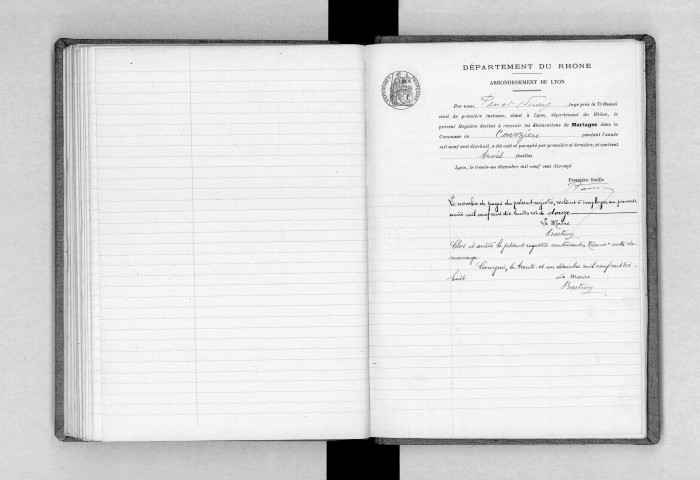 DÉPARTEMENT DU RHÔNE
ARRONDISSEMENT DE LYON
Par nous, Juge près le Tribunal
civil de première instance, séant à Lyon, département du Rhône, le
présent Registre destiné à recevoir les déclarations de Mariages dans la
Commune de Courzieu pendant l'année
mil neuf cent dix-huit, a été coté et paraphé par première et dernière, et contient
trois feuilles.
Lyon, le trente-un décembre mil neuf cent dix-sept
Première feuille
Le nombre de pages du présent registre, restant à employer au premier
août mil neuf cent dix huit est de douze
Le Maire
Clos et arrêté le présent registre contenant "Néant" acte de
mariage.
le trente et un décembre mil neuf cent dix-
huit Le Maire